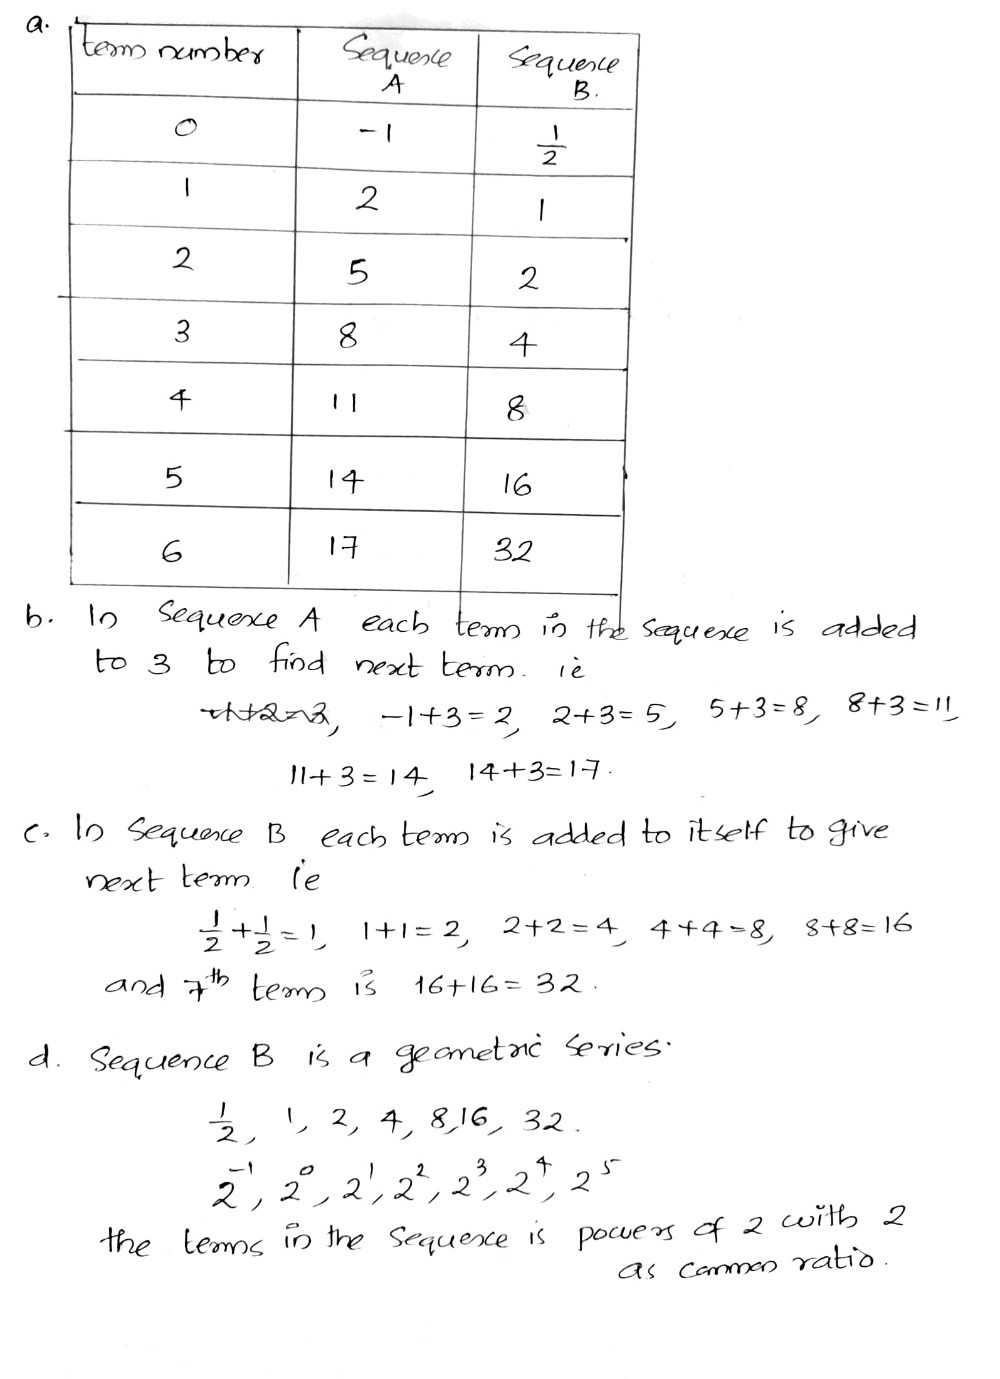 a.
term number | Sequence A | Sequence B.
0 | -1 | 1/2
1 | 2 | 1
2 | 5 | 2
3 | 8 | 4
4 | 11 | 8
5 | 14 | 16
6 | 17 | 32
b. In Sequence A each term in the sequence is added
to 3 to find next term. ie
-1+3=2, 2+3=5, 5+3=8, 8+3=11,
11+3=14, 14+3=17.
c. In Sequence B each term is added to itself to give
next term ie
1/2+1/2=1, 1+1=2, 2+2=4, 4+4=8, 8+8=16
and 7th term is 16+16=32.
d. Sequence B is a geometric series.
1/2, 1, 2, 4, 8, 16, 32.
2⁻¹, 2⁰, 2¹, 2², 2³, 2⁴, 2⁵
the terms in the sequence is powers of 2 with 2
as common ratio.